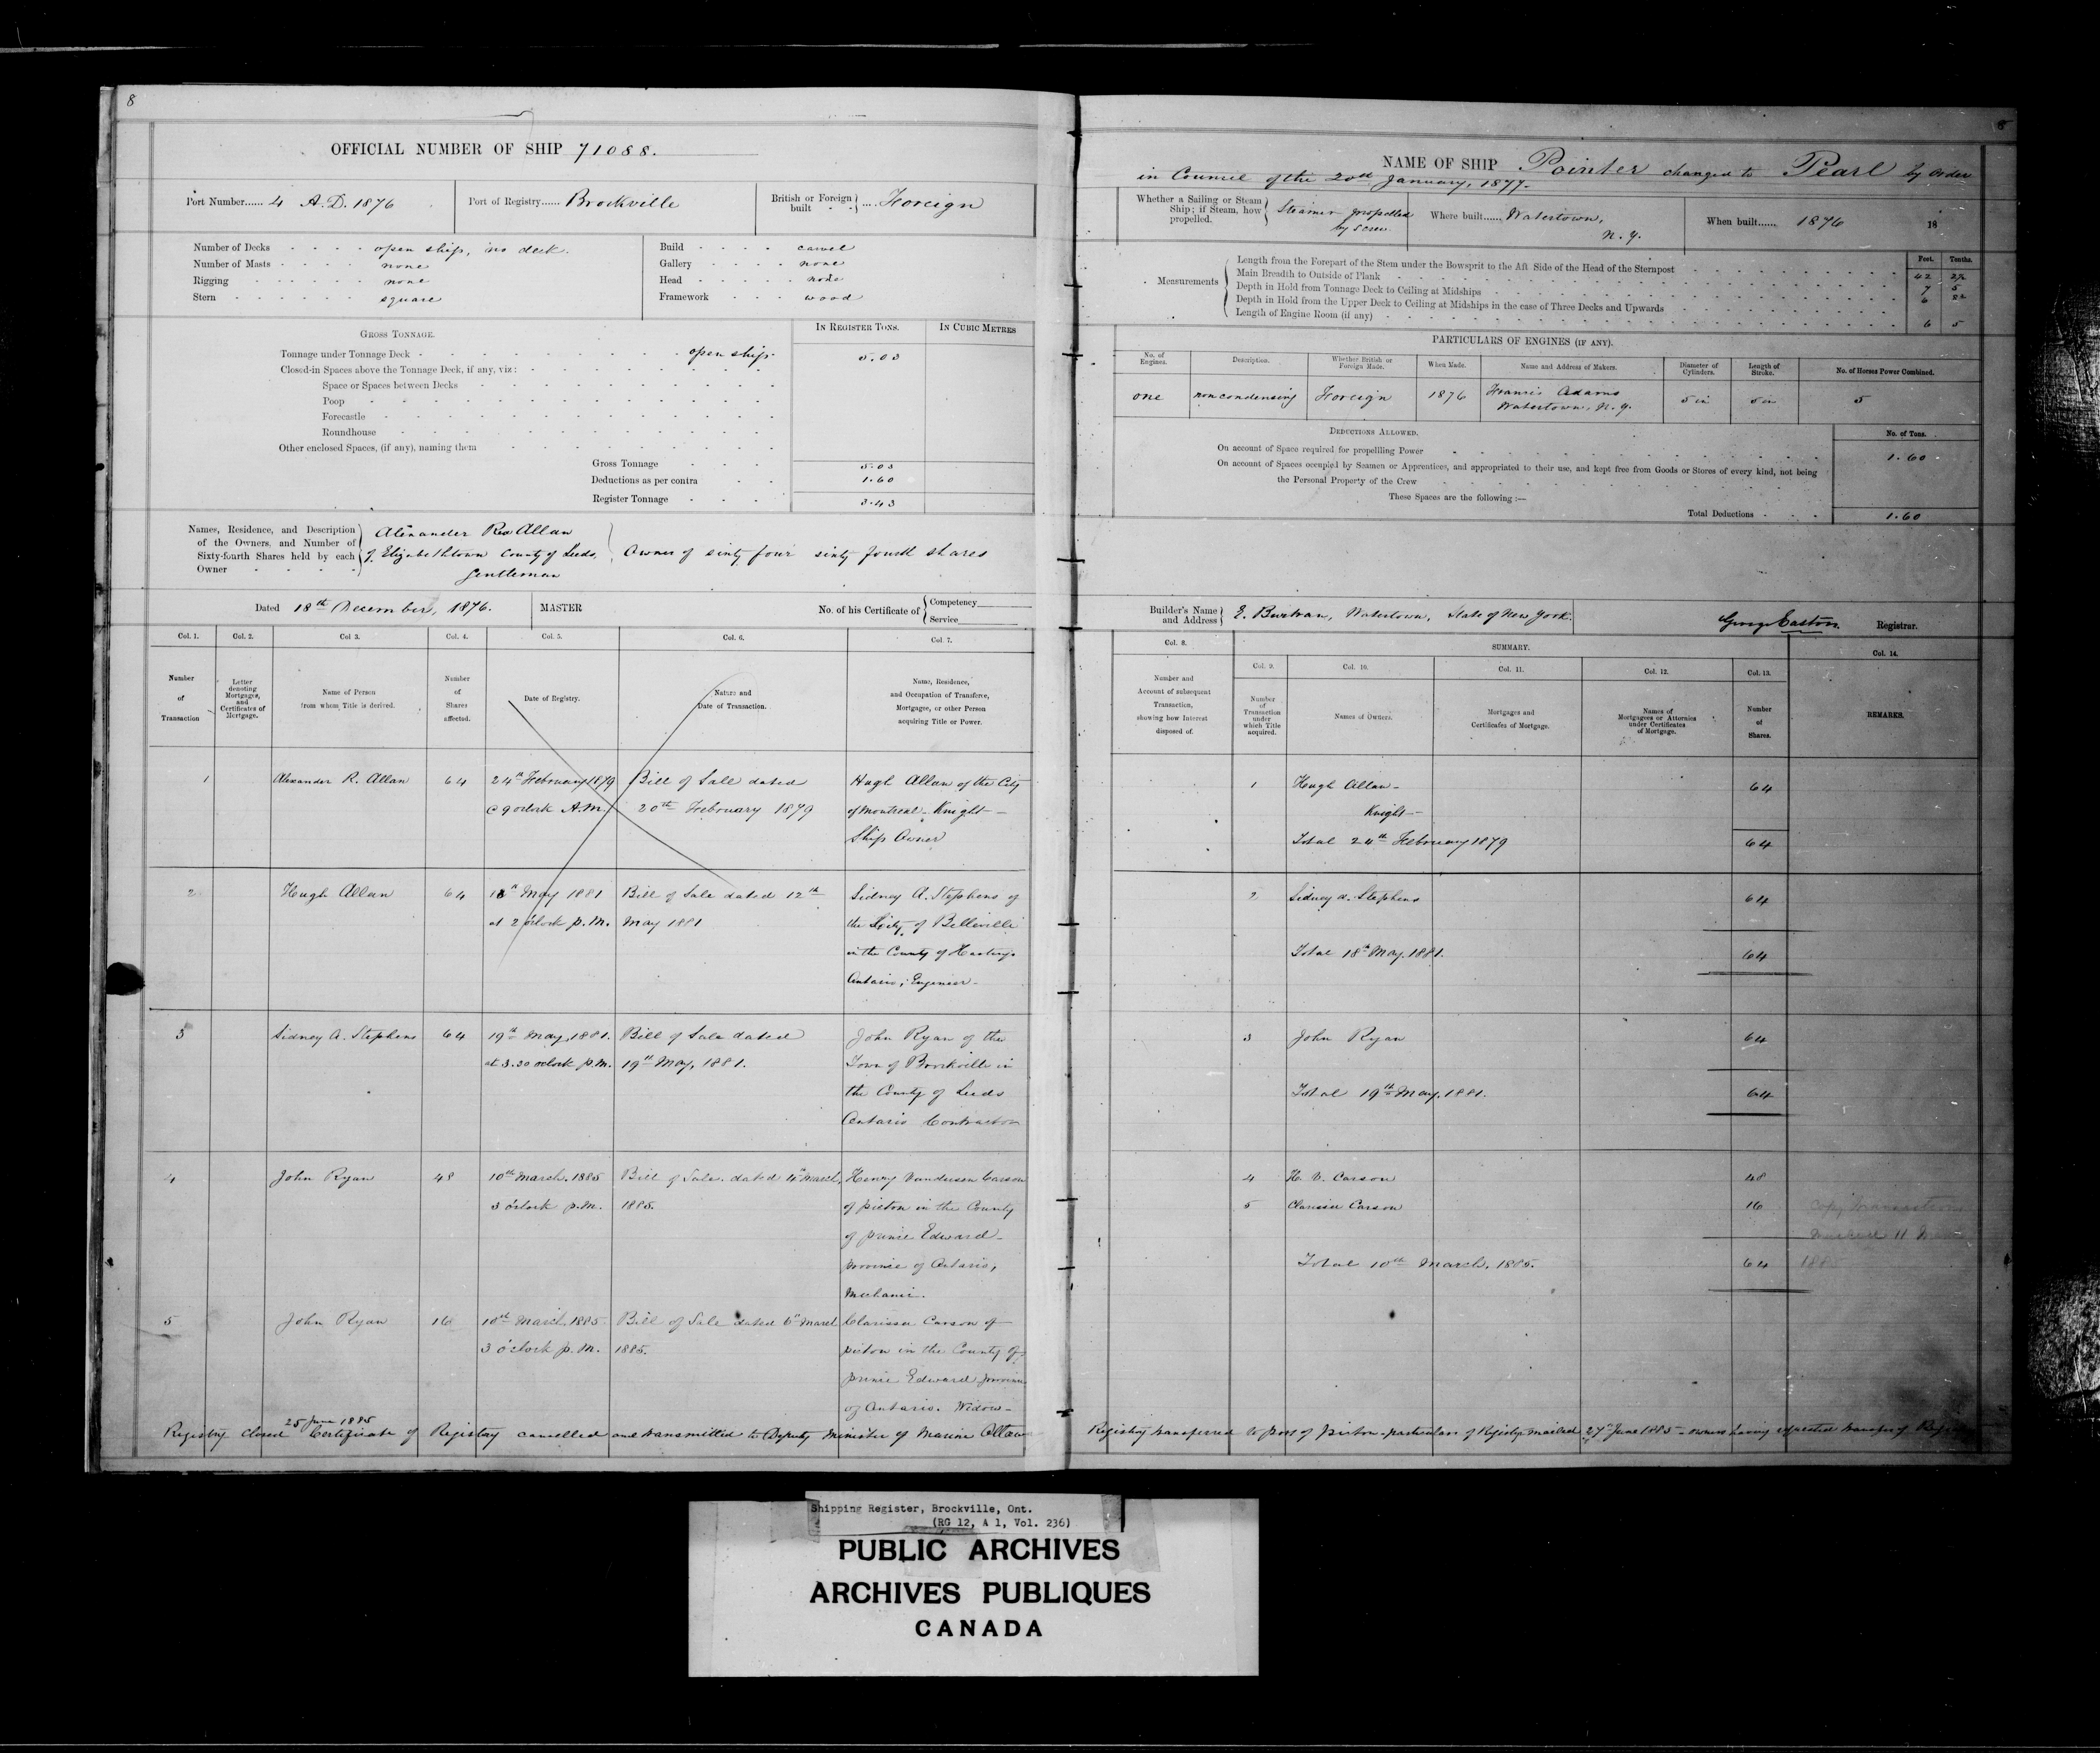 8
OFFICIAL NUMBER OF SHIP 71088.
Port Number...... 4 A.D. 1876
Port of Registry...... Brockville
British or Foreign built .... Foreign
Number of Decks open ship, no deck.
Number of Masts none
Rigging none
Stern square
Build carvel
Gallery none
Head none
Framework wood
GROSS TONNAGE.
IN REGISTER TONS.
IN CUBIC METRES
Tonnage under Tonnage Deck open ship. 5.03
Closed-in Spaces above the Tonnage Deck, if any, viz:
Space or Spaces between Decks
Poop
Forecastle
Roundhouse
Other enclosed Spaces, (if any), naming them
Gross Tonnage 5.03
Deductions as per contra 1.60
Register Tonnage 3.43
Names, Residence, and Description
of the Owners, and Number of
Sixty-fourth Shares held by each
Owner
Alexander Rea Allan
of Elizabethtown County of Leeds,
Gentleman
Owner of sixty four sixty fourth shares
Dated 18th December, 1876.
MASTER
No. of his Certificate of
Competency
Service
Col. 1.
Col. 2.
Col 3.
Col. 4.
Col. 5.
Col. 6.
Col. 7.
Number of Transaction
Letter denoting Mortgages, and Certificates of Mortgage.
Name of Person from whom Title is derived.
Number of Shares affected.
Date of Registry.
Nature and Date of Transaction.
Name, Residence, and Occupation of Transferee, Mortgagee, or other Person acquiring Title or Power.
1 Alexander R. Allan 64 24th February 1879 Bill of Sale dated Hugh Allan of the City
9 oclock A.M. 20th February 1879 of Montreal. Knight
Ship Owner
2 Hugh Allan 64 18th May 1881 Bill of Sale dated 12th Sidney A. Stephens of
at 2 oclock p.m. May 1881 the City of Belleville
in the County of Hastings
Ontario, Engineer
3 Sidney A. Stephens 64 19th May, 1881. Bill of Sale dated John Ryan of the
at 3.30 oclock p.m. 19th May, 1881. Town of Brockville in
the County of Leeds
Ontario Contractor
4 John Ryan 48 10th March, 1885 Bill of Sale dated March, Henry Vandusen Carson
3 o'clock p.m. 1885. of picton in the County
of prince Edward
province of Ontario,
Mechanic.
5 John Ryan 16 10th March, 1885 Bill of Sale dated March Clarissa Carson of
3 o'clock p.m. 1885. picton in the County of
prince Edward province
of Ontario. Widow
25 June 1885
Registry closed Certificate of Registry cancelled and transmitted to Deputy Minister of Marine Ottawa
8
NAME OF SHIP Pointer changed to Pearl by Order
in Council of the 20th January, 1877.
Whether a Sailing or Steam
Ship; if Steam, how
propelled.
Steamer propelled
by screw
Where built...... Watertown,
N.Y.
When built...... 1876
18
Measurements
Feet. Tenths.
Length from the Forepart of the Stem under the Bowsprit to the Aft Side of the Head of the Sternpost 42
Main Breadth to Outside of Plank 7 5
Depth in Hold from Tonnage Deck to Ceiling at Midships
Depth in Hold from the Upper Deck to Ceiling at Midships in the case of Three Decks and Upwards
Length of Engine Room (if any) 6 5
PARTICULARS OF ENGINES (IF ANY).
No. of Engines.
Description.
Whether British or Foreign Made.
When Made.
Name and Address of Makers.
Diameter of Cylinders.
Length of Stroke.
No. of Horses Power Combined.
one non condensing Foreign 1876 Francis Adams 5 in 5 in 5
Watertown, N.Y.
DEDUCTIONS ALLOWED.
No. of Tons.
On account of Space required for propelling Power 1.60
On account of Spaces occupied by Seamen or Apprentices, and appropriated to their use, and kept free from Goods or Stores of every kind, not being
the Personal Property of the Crew
These Spaces are the following :—
Total Deductions 1.60
Builder's Name
and Address
Watertown, State of New York.
George Easton Registrar.
Col. 8.
SUMMARY.
Col. 9.
Col. 10.
Col. 11.
Col. 12.
Col. 13.
Col. 14.
Number and Account of subsequent Transaction, showing how Interest disposed of.
Number of Transaction under which Title acquired.
Names of Owners.
Mortgages and Certificates of Mortgage.
Names of Mortgagees or Attornies under Certificates of Mortgage.
Number of Shares.
REMARKS.
1 Hugh Allan 64
Knight
Total 24th February 1879 64
2 Sidney A. Stephens 64
Total 18th May. 1881. 64
3 John Ryan 64
Total 19th May, 1881. 64
4 H. V. Carson 48
5 Clarissa Carson 16
Total 10th March, 1885. 64
Registry transferred to port of picton particulars of Registry mailed 27th June 1885 owners having requested transfer of
Shipping Register, Brockville, Ont.
(RG 12, A 1, Vol. 236)
PUBLIC ARCHIVES
ARCHIVES PUBLIQUES
CANADA